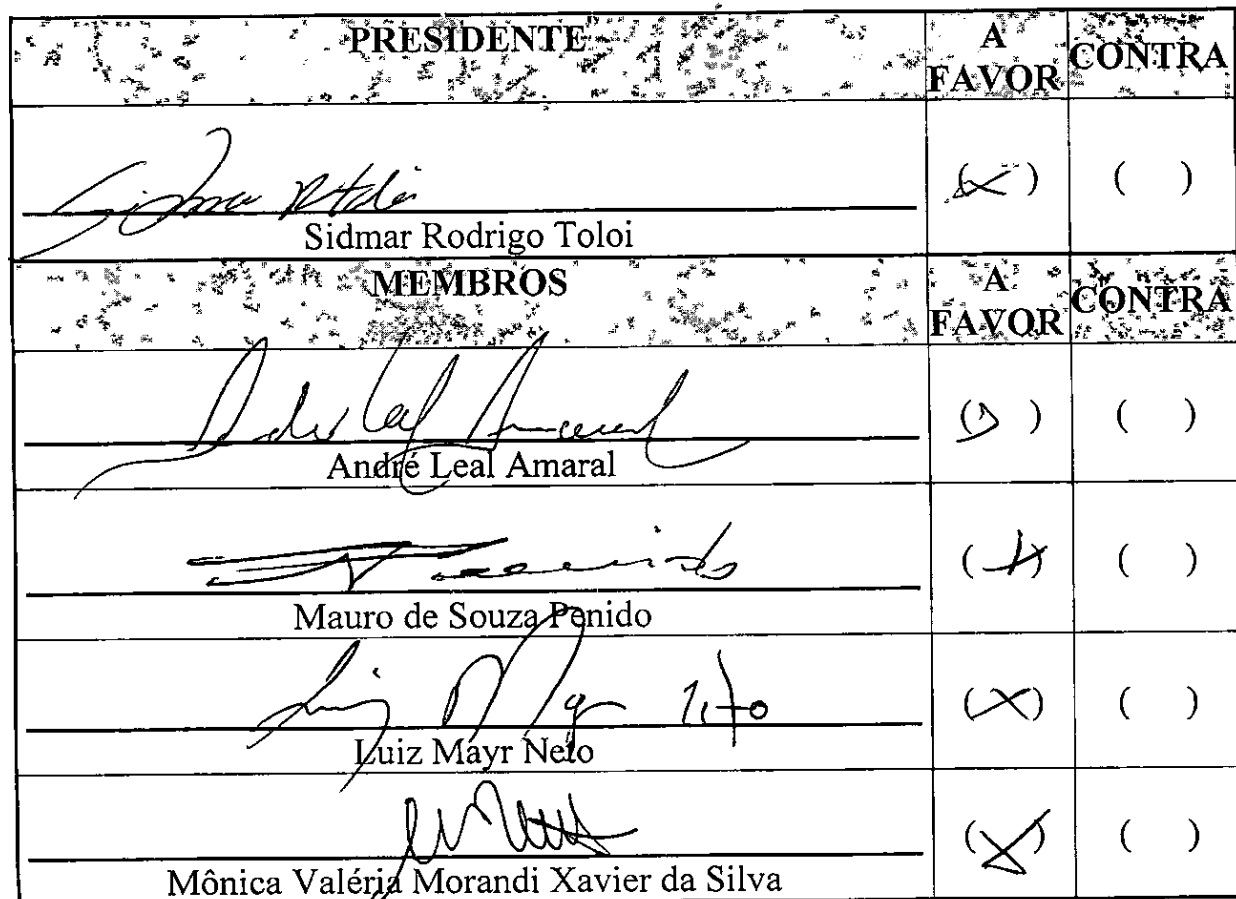 PRESIDENTE A FAVOR CONTRA
(X) ( )
Sidmar Rodrigo Toloi
MEMBROS A FAVOR CONTRA
André Leal Amaral
( ) ( )
Mauro de Souza Penido
(X) ( )
Luiz Mayr Neto
(X) ( )
Mônica Valéria Morandi Xavier da Silva
(X) ( )